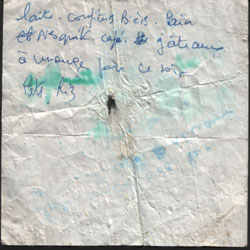 laits. confitures. Bics. Pain
et Nesquik café. gâteaux
à manger pour ce soir
Pâte Riz